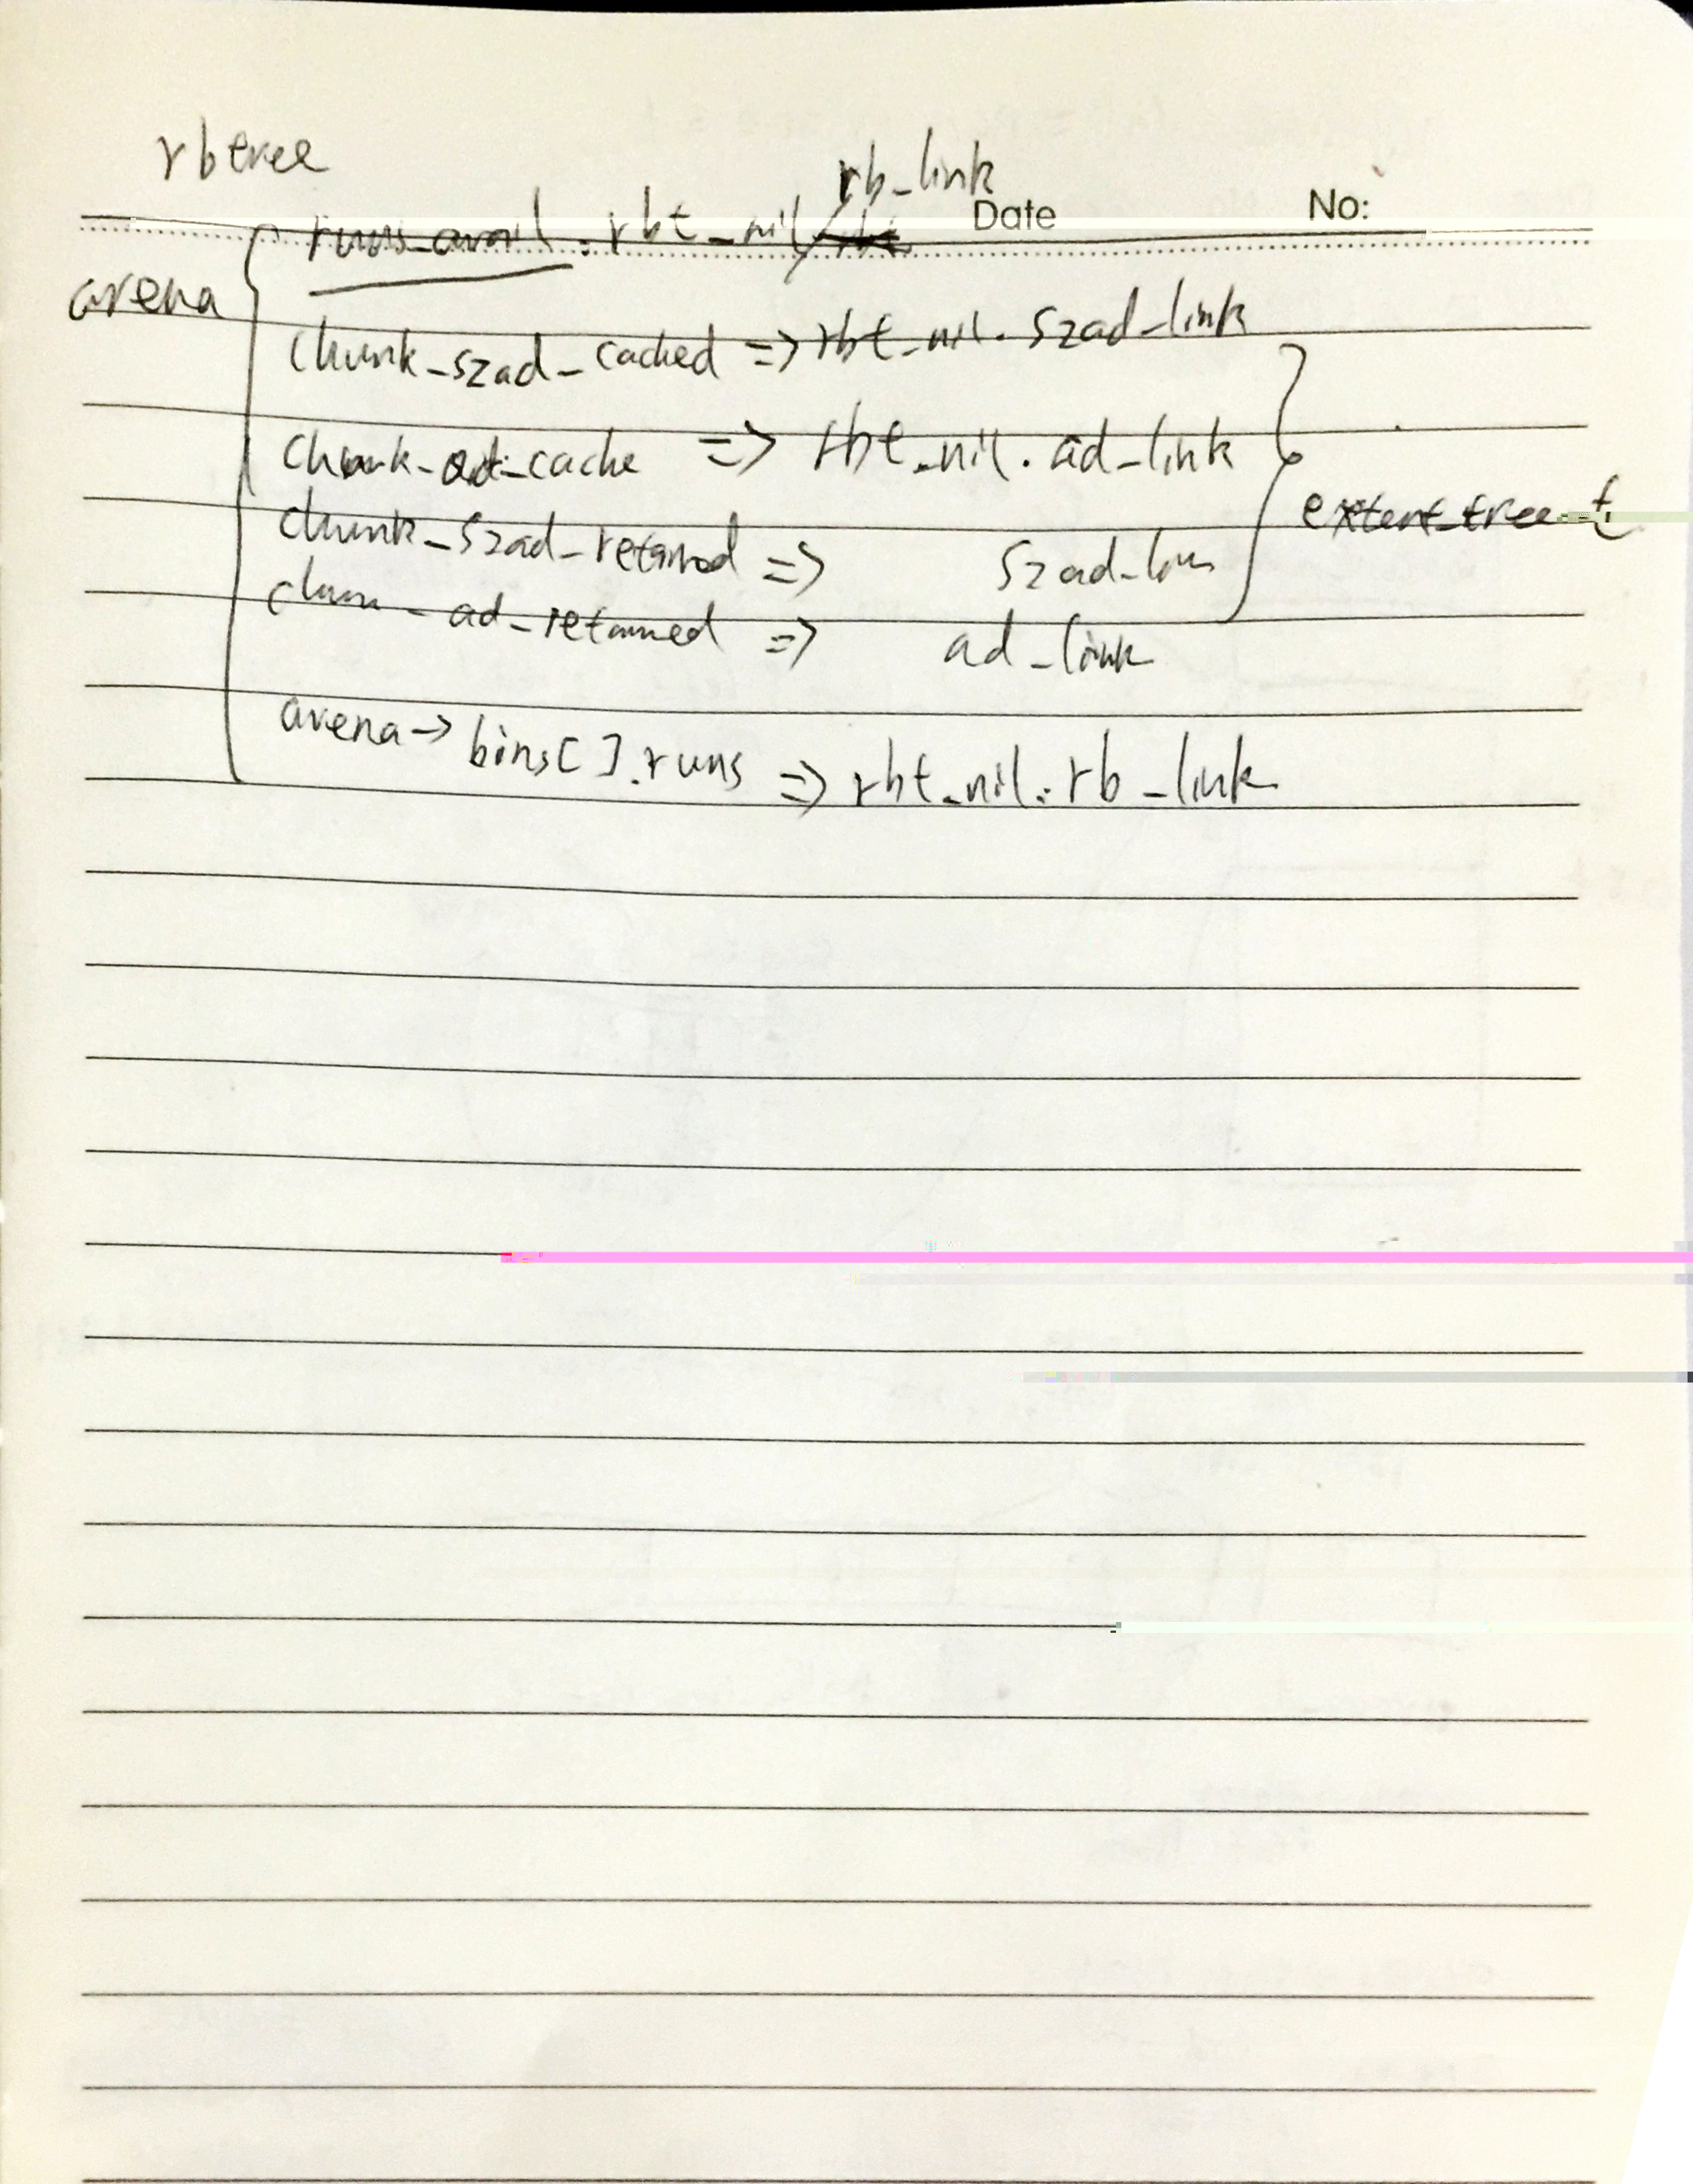 rbtree
rb_link
Date No:
runs_avail . rbt_nil
arena
chunk_szad_cached => rbt_nil. szad_link
chunk_ad_cache => rbt_nil. ad_link
extent_tree_t
chunk_szad_retained => szad_lin
chun_ad_retained => ad_link
arena-> bins[].runs => rbt_nil. rb_link